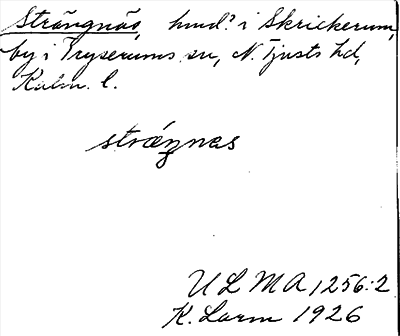 Strängnäs, hmd? i Skrickerum,
by i Tryserums sn, N. Tjusts hd,
Kalm. l.
strǽŋnas
ULMA 1256:2
K. Larm 1926